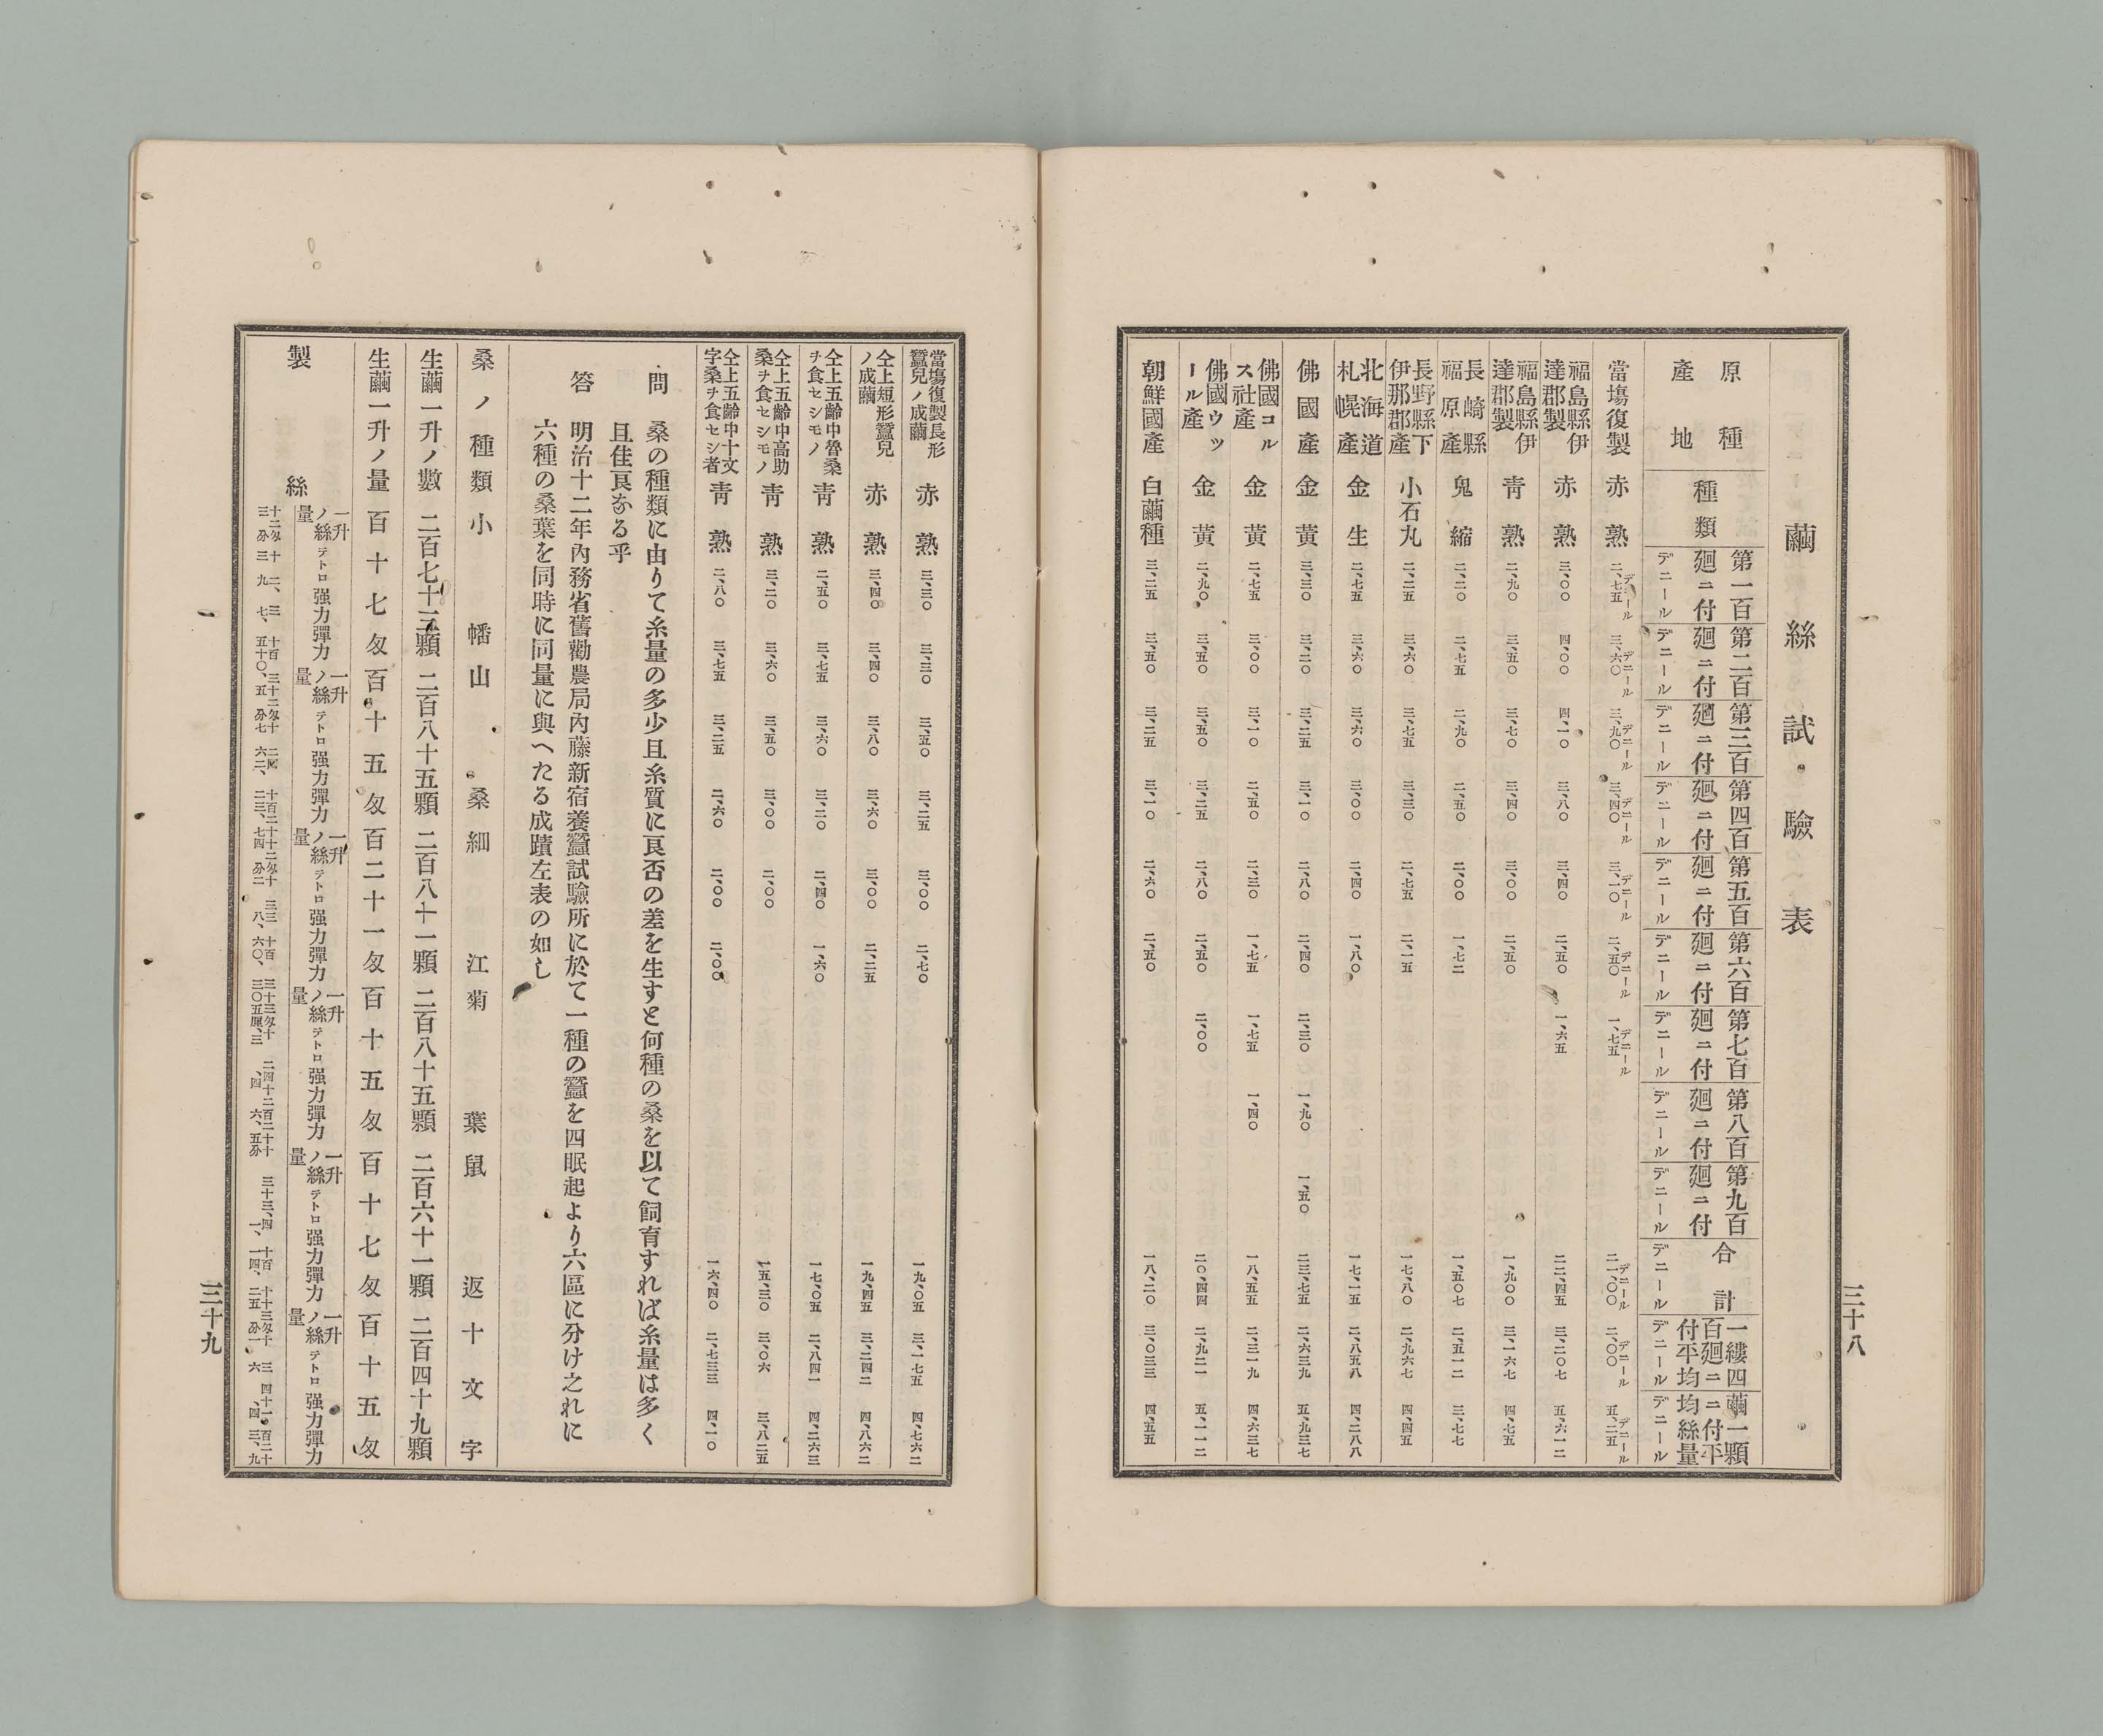 三十八
繭絲試驗表
原種產地 種類 第一百廻ニ付デニール 第二百廻ニ付デニール 第三百廻ニ付デニール 第四百廻ニ付デニール 第五百廻ニ付デニール 第六百廻ニ付デニール 第七百廻ニ付デニール 第八百廻ニ付デニール 第九百廻ニ付デニール 合計デニール 一縷四百廻ニ付平均デニール 繭一顆ニ付平均絲量デニール
當場復製 赤熟 二、七五デニール 三、六〇デニール 三、九〇デニール 三、四〇デニール 三、一〇デニール 二、五〇デニール 一、七五デニール 二一、〇〇デニール 二、〇〇デニール 五、二五デニール
福島縣伊達郡製 赤熟 三、〇〇 四、〇〇 四、一〇 三、八〇 三、四〇 二、五〇 一、六五 二二、四五 三、二〇七 五、六一二
福島縣伊達郡製 靑熟 二、九〇 三、五〇 三、七〇 三、四〇 三、〇〇 二、五〇 一、九〇〇 三、一六七 四、七五
長崎縣福原產 鬼縮 二、二〇 二、七五 二、九〇 二、五〇 二、〇〇 一、七二 一、五〇七 二、五一二 三、七七
長野縣下伊那郡產 小石丸 二、二五 三、六〇 三、七五 三、三〇 二、七五 二、一五 一七、八〇 二、九六七 四、四五
北海道札幌產 金生 二、七五 三、六〇 三、六〇 三、〇〇 二、四〇 一、八〇 一七、一五 二、八五八 四、二八八
佛國產 金黃 三、三〇 三、二〇 三、二五 三、一〇 二、八〇 二、四〇 二、三〇 一、九〇 一、五〇 二三、七五 二、六三九 五、九三七
佛國コルス社產 金黃 二、七五 三、〇〇 三、一〇 二、五〇 二、三〇 一、七五 一、七五 一、四〇 一八、五五 二、三一九 四、六三七
佛國ウッール產 金黃 二、九〇 三、五〇 三、五〇 三、二五 二、八〇 二、五〇 二、〇〇 二〇、四四 二、九二一 五、一一二
朝鮮國產 白繭種 三、二五 三、五〇 三、二五 三、一〇 二、六〇 二、五〇 一八、二〇 三、〇三三 四、五五
當場復製長形蠶兒ノ成繭 赤熟 三、三〇 三、三〇 三、五〇 三、二五 三、〇〇 二、七〇 一九、〇五 三、一七五 四、七六二
仝上短形蠶兒ノ成繭 赤熟 三、四〇 三、四〇 三、八〇 三、六〇 三、〇〇 二、二五 一九、四五 三、二四二 四、八六二
仝上五齡中魯桑ヲ食セシモノ 靑熟 二、五〇 三、七五 三、六〇 三、二〇 二、四〇 一、六〇 一七、〇五 二、八四一 四、二六三
仝上五齡中高助桑ヲ食セシモノ 靑熟 三、二〇 三、六〇 三、五〇 三、〇〇 二、〇〇 一五、三〇 三、〇六 三、八二五
仝上五齡中十文字桑ヲ食セシ者 靑熟 二、八〇 三、七五 三、二五 二、六〇 二、〇〇 二、〇〇 一六、四〇 二、七三三 四、一〇
問 桑の種類に由りて糸量の多少且糸質に良否の差を生すと何種の桑を以て飼育すれば糸量は多く
且佳良なる乎
答 明治十二年內務省舊勸農局內藤新宿養蠶試驗所に於て一種の蠶を四眠起より六區に分け之れに
六種の桑葉を同時に同量に與へたる成蹟左表の如し
桑ノ種類 小幡 山桑 細江 菊葉 鼠返 十文字
生繭一升ノ數 二百七十三顆 二百八十五顆 二百八十一顆 二百八十五顆 二百六十一顆 二百四十九顆
生繭一升ノ量 百十七匁 百十五匁 百二十一匁 百十五匁 百十七匁 百十五匁
製絲 一升ノ絲量 テトロ 强力 彈力 一升ノ絲量 テトロ 强力 彈力 一升ノ絲量 テトロ 强力 彈力 一升ノ絲量 テトロ 强力 彈力 一升ノ絲量 テトロ 强力 彈力 一升ノ絲量 テトロ 强力 彈力
三十九